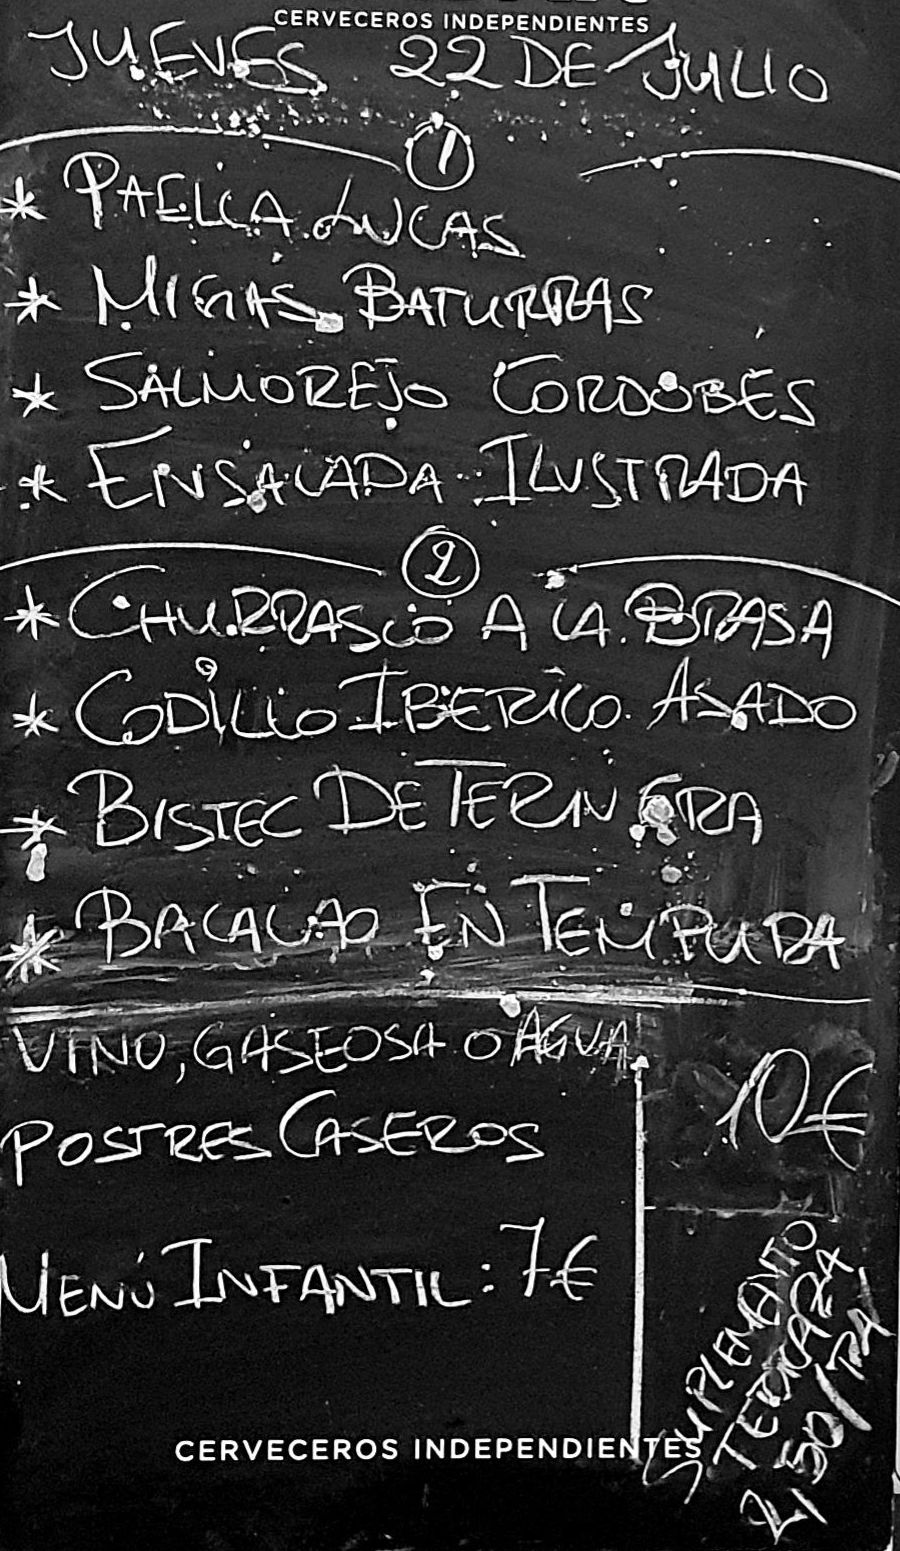 CERVECEROS INDEPENDIENTES
JUEVES 22 DE JULIO
1
* PAELLA LUCAS
* MIGAS BATURRAS
* SALMOREJO CORDOBÉS
* ENSALADA ILUSTRADA
2
* CHURRASCO A LA BRASA
* CODILLO IBERICO ASADO
* BISTEC DE TERNERA
* BACALAO EN TEMPURA
VINO, GASEOSA O AGUA
10€
POSTRES CASEROS
MENÚ INFANTIL: 7€
SUPLEMENTO
TERRAZA
2,50/
CERVECEROS INDEPENDIENTES